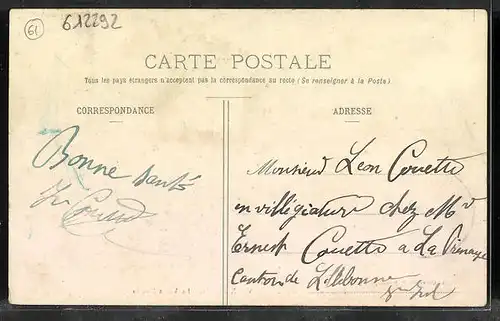 61
612292
CARTE POSTALE
Tous les pays étrangers n'acceptent pas la correspondance au recto (Se renseigner à la Poste)
CORRESPONDANCE
ADRESSE
Bonne santé
Monsieur Léon Couette
en villégiature chez Mr
Ernest Couette a La
Canton de Lillebonne